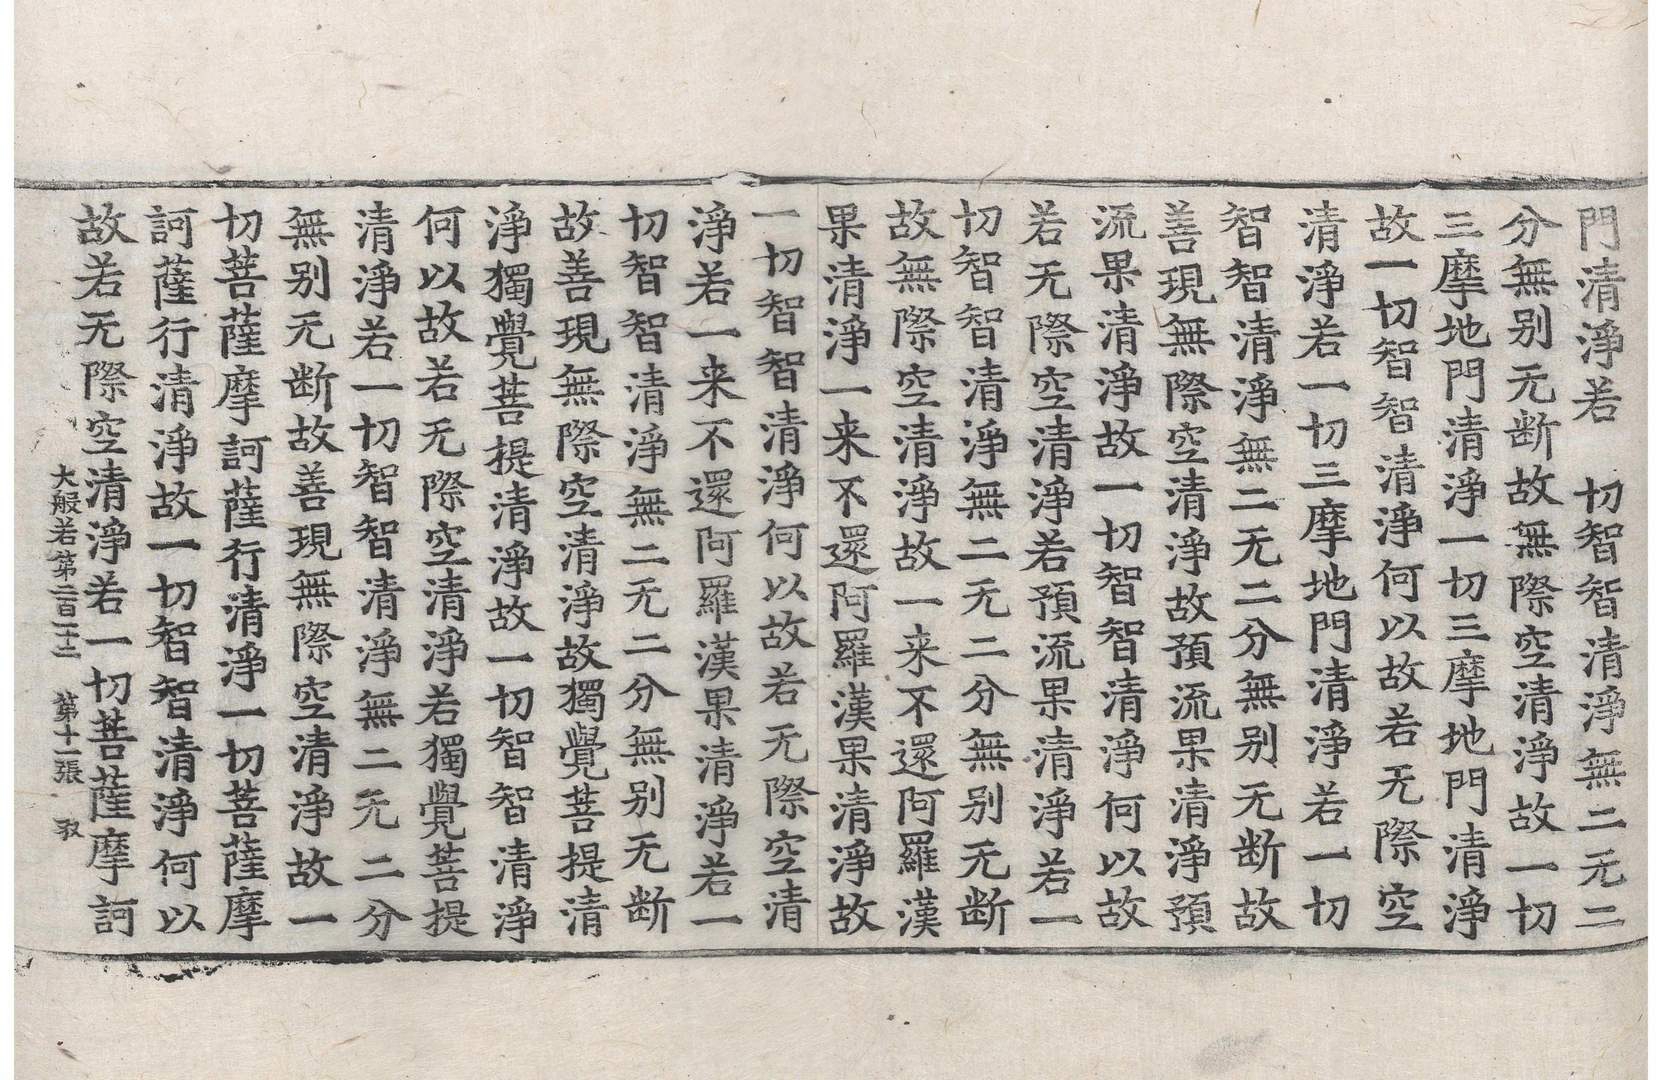 門清淨若 切智智清淨無二无二
分無别无断故無際空清淨故一切
三摩地門清淨一切三摩地門清淨
故一切智智清淨何以故若无際空
清淨若一切三摩地門清淨若一切
智智清淨無二无二分無别无断故
善現無際空清淨故預流果清淨預
流果清淨故一切智智清淨何以故
若无際空清淨若預流果清淨若一
切智智清淨無二无二分無别无断
故無際空清淨故一来不還阿羅漢
果清淨一来不還阿羅漢果清淨故
一切智智清淨何以故若无際空清
淨若一来不還阿羅漢果清淨若一
切智智清淨無二无二分無别无断
故善現無際空清淨故獨覺菩提清
淨獨覺菩提清淨故一切智智清淨
何以故若无際空清淨若獨覺菩提
清淨若一切智智清淨無二无二分
無别无断故善現無際空清淨故一
切菩薩摩訶薩行清淨一切菩薩摩
訶薩行清淨故一切智智清淨何以
故若无際空清淨若一切菩薩摩訶
大般若第二百二十二 第十一張